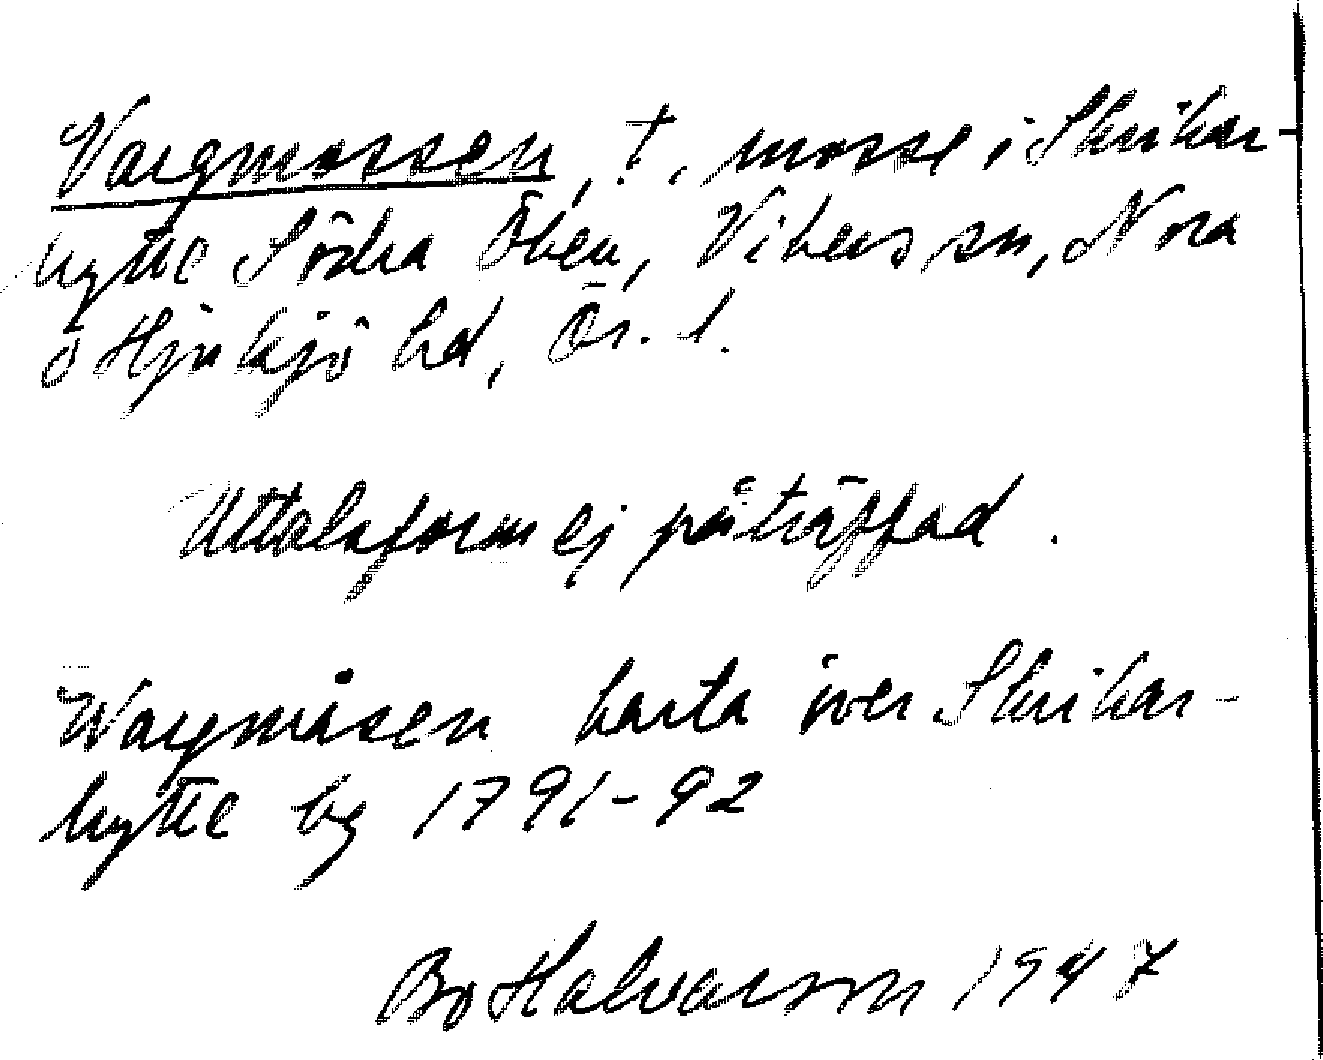 Vargmossen, †, mosse i Skrikar-
hytte Södra Öken, Vikers sn, Nora
o Hjulsjö hd, Ör. l.
Uttalsform ej påträffad.
Wargmåsen karta över Skrikar-
hytte by 1791-92
Bo Halvarson 1947